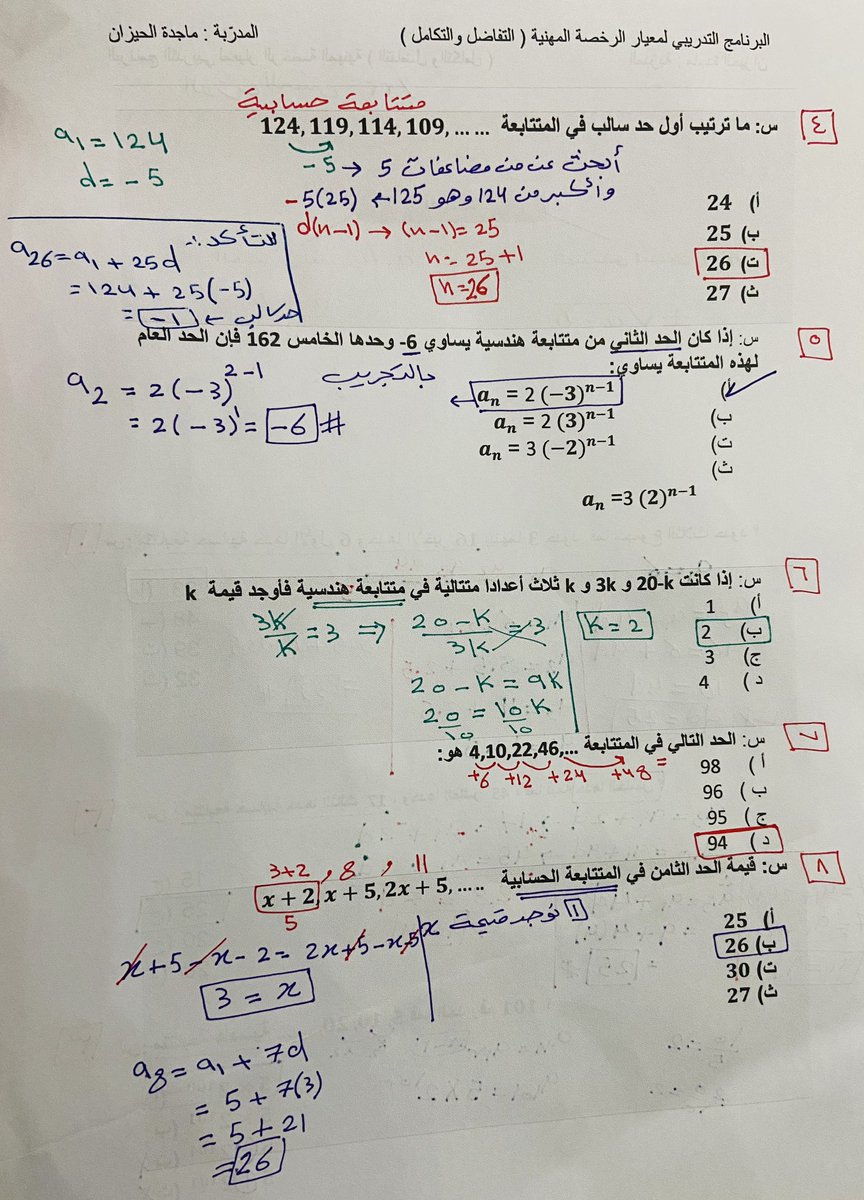 البرنامج التدريبي لمعيار الرخصة المهنية ( التفاضل والتكامل ) المدرّبة : ماجدة الحيزان
متتابعة حسابية
٤ س: ما ترتيب أول حد سالب في المتتابعة 124, 119, 114, 109, ... ...
a₁ = 124
d = -5
-5 → أبحث عن من مضاعفات 5
وأكبر من 124 وهو 125 ← -5(25)
d(n-1) → (n-1) = 25
n = 25+1
n=26
أ) 24
ب) 25
ت) 26
ث) 27
للتأكد :-
a₂₆ = a₁ + 25d
= 124 + 25(-5)
= -1 ← حد سالب
٥ س: إذا كان الحد الثاني من متتابعة هندسية يساوي 6- وحدها الخامس 162 فإن الحد العام
لهذه المتتابعة يساوي:
بالتجريب
أ) aₙ = 2 (−3)ⁿ⁻¹
ب) aₙ = 2 (3)ⁿ⁻¹
ت) aₙ = 3 (−2)ⁿ⁻¹
ث)
aₙ =3 (2)ⁿ⁻¹
a₂ = 2(-3)²⁻¹
= 2(-3)¹ = -6 #
٦ س: إذا كانت 20-k و 3k و k ثلاث أعدادا متتالية في متتابعة هندسية فأوجد قيمة k
أ) 1
ب) 2
ج) 3
د) 4
3k/k = 3 ⇒ (20-k)/3k = 3
20-k = 9k
20/10 = 10/10 k
k = 2
٧ س: الحد التالي في المتتابعة 4,10,22,46,... هو:
+6 +12 +24 +48 =
أ) 98
ب) 96
ج) 95
د) 94
٨ س: قيمة الحد الثامن في المتتابعة الحسابية x + 2, x + 5, 2x + 5, ... ..
3+2 , 8 , 11
5
أ) 25
ب) 26
ت) 30
ث) 27
1 نوجد قيمة x
x+5-x-2 = 2x+5-x-5
3 = x
a₈ = a₁ + 7d
= 5 + 7(3)
= 5 + 21
= 26